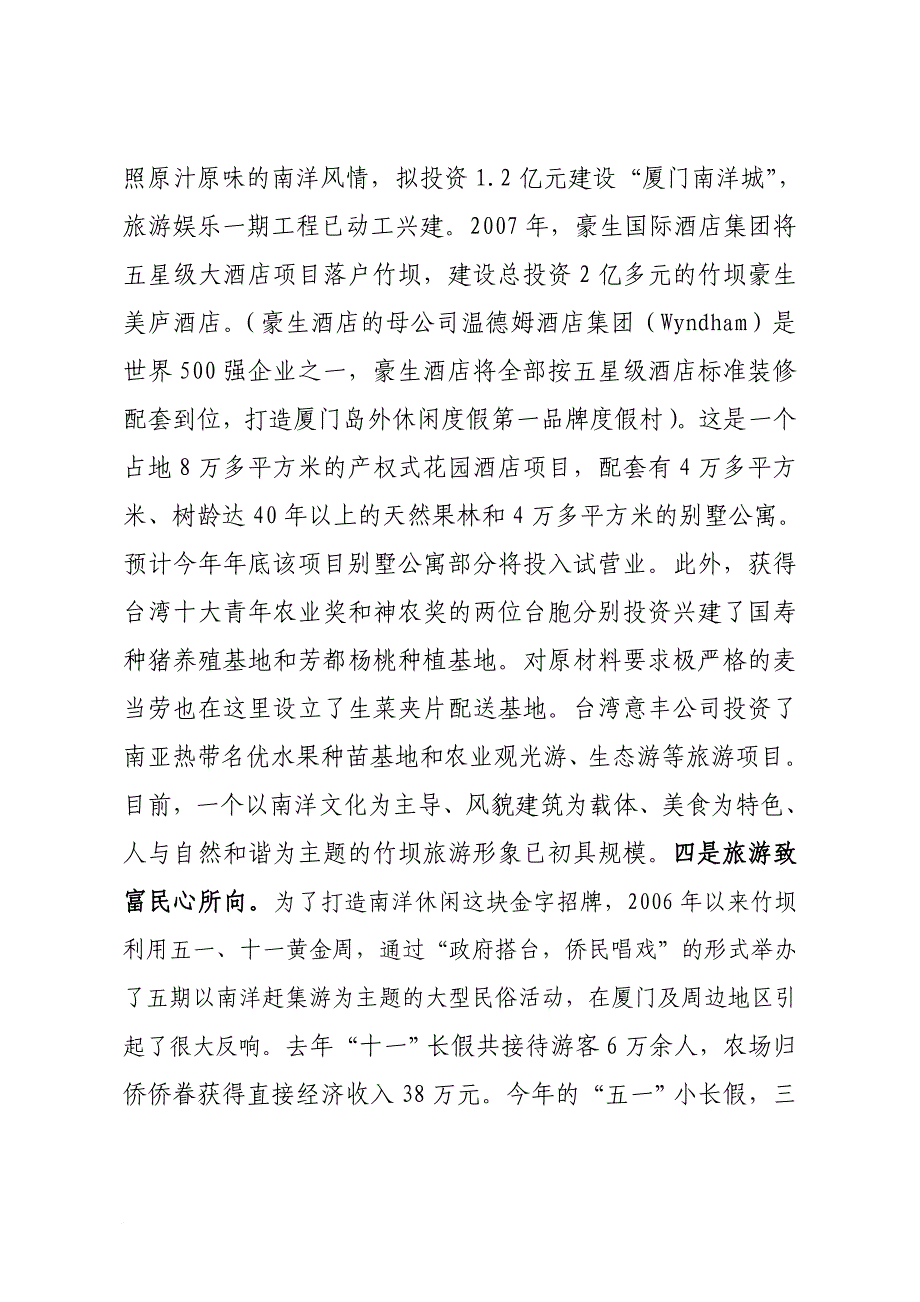 照原汁原味的南洋风情，拟投资 1.2 亿元建设“厦门南洋城”，
旅游娱乐一期工程已动工兴建。2007 年，豪生国际酒店集团将
五星级大酒店项目落户竹坝，建设总投资 2 亿多元的竹坝豪生
美庐酒店。（豪生酒店的母公司温德姆酒店集团（Wyndham）是
世界 500 强企业之一，豪生酒店将全部按五星级酒店标准装修
配套到位，打造厦门岛外休闲度假第一品牌度假村）。这是一个
占地 8 万多平方米的产权式花园酒店项目，配套有 4 万多平方
米、树龄达 40 年以上的天然果林和 4 万多平方米的别墅公寓。
预计今年年底该项目别墅公寓部分将投入试营业。此外，获得
台湾十大青年农业奖和神农奖的两位台胞分别投资兴建了国寿
种猪养殖基地和芳都杨桃种植基地。对原材料要求极严格的麦
当劳也在这里设立了生菜夹片配送基地。台湾意丰公司投资了
南亚热带名优水果种苗基地和农业观光游、生态游等旅游项目。
目前，一个以南洋文化为主导、风貌建筑为载体、美食为特色、
人与自然和谐为主题的竹坝旅游形象已初具规模。四是旅游致
富民心所向。为了打造南洋休闲这块金字招牌，2006 年以来竹坝
利用五一、十一黄金周，通过“政府搭台，侨民唱戏”的形式举办
了五期以南洋赶集游为主题的大型民俗活动，在厦门及周边地区引
起了很大反响。去年“十一”长假共接待游客 6 万余人，农场归
侨侨眷获得直接经济收入 38 万元。今年的“五一”小长假，三